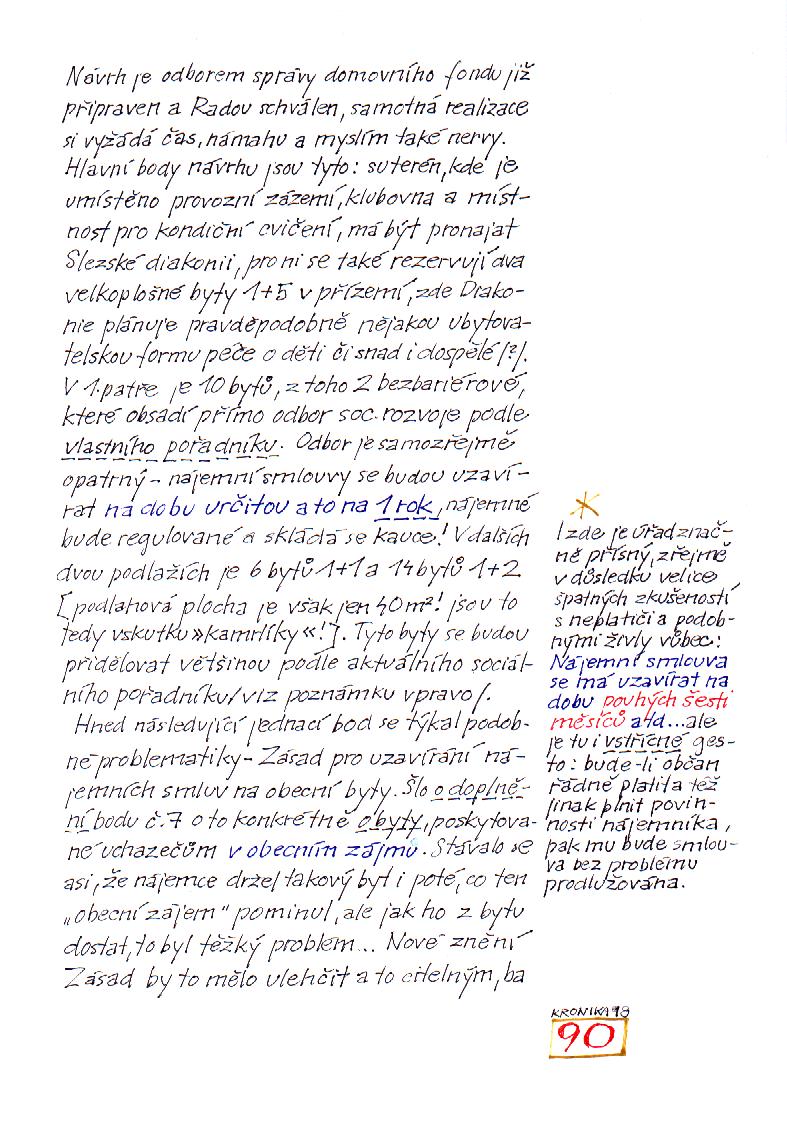 Návrh je odborem správy domovního fondu již
připraven a Radou schválen, samotná realizace
si vyžádá čas, námahu a myslím také nervy.
Hlavní body návrhu jsou tyto: suterén, kde je
umístěno provozní zázemí, klubovna a míst-
nost pro kondiční cvičení, má být pronajat
Slezské diakonii, pro ni se také rezervují dva
velkoplošné byty 1+5 v přízemí, zde Diako-
nie plánuje pravděpodobně nějakou ubytova-
telskou formu péče o děti či snad i dospělé /?/.
V 1. patře je 10 bytů, z toho 2 bezbariérové,
které obsadí přímo odbor soc. rozvoje podle
vlastního pořadníku. Odbor je samozřejmě
opatrný - nájemní smlouvy se budou uzaví-
rat na dobu určitou a to na 1 rok, nájemné
bude regulované a skládá se kauce! V dalších
dvou podlažích je 6 bytů 1+1 a 14 bytů 1+2
[podlahová plocha je však jen 40 m²! jsou to
tedy vskutku »kamrlíky«!]. Tyto byty se budou
přidělovat většinou podle aktuálního sociál-
ního pořadníku /viz poznámku vpravo/.
Hned následující jednací bod se týkal podob-
né problematiky - Zásad pro uzavírání ná-
jemních smluv na obecní byty. Šlo o doplně-
ní bodu č.7 o to konkrétně o byty, poskytova-
né uchazečům v obecním zájmu. Stávalo se
asi, že nájemce držel takový byt i poté, co ten
„obecní zájem" pominul, ale jak ho z bytu
dostat, to byl těžký problém... Nové znění
Zásad by to mělo ulehčit a to citelným, ba
*
I zde je úřad znač-
ně přísný, zřejmě
v důsledku velice
špatných zkušeností
s neplatiči a podob-
nými živly vůbec:
Nájemní smlouva
se má uzavírat na
dobu pouhých šesti
měsíců atd... ale
je tu i vstřícné ges-
to: bude-li občan
řádně platit a též
jinak plnit povin-
nosti nájemníka,
pak mu bude smlou-
va bez problému
prodlužována.
KRONIKA 98
90